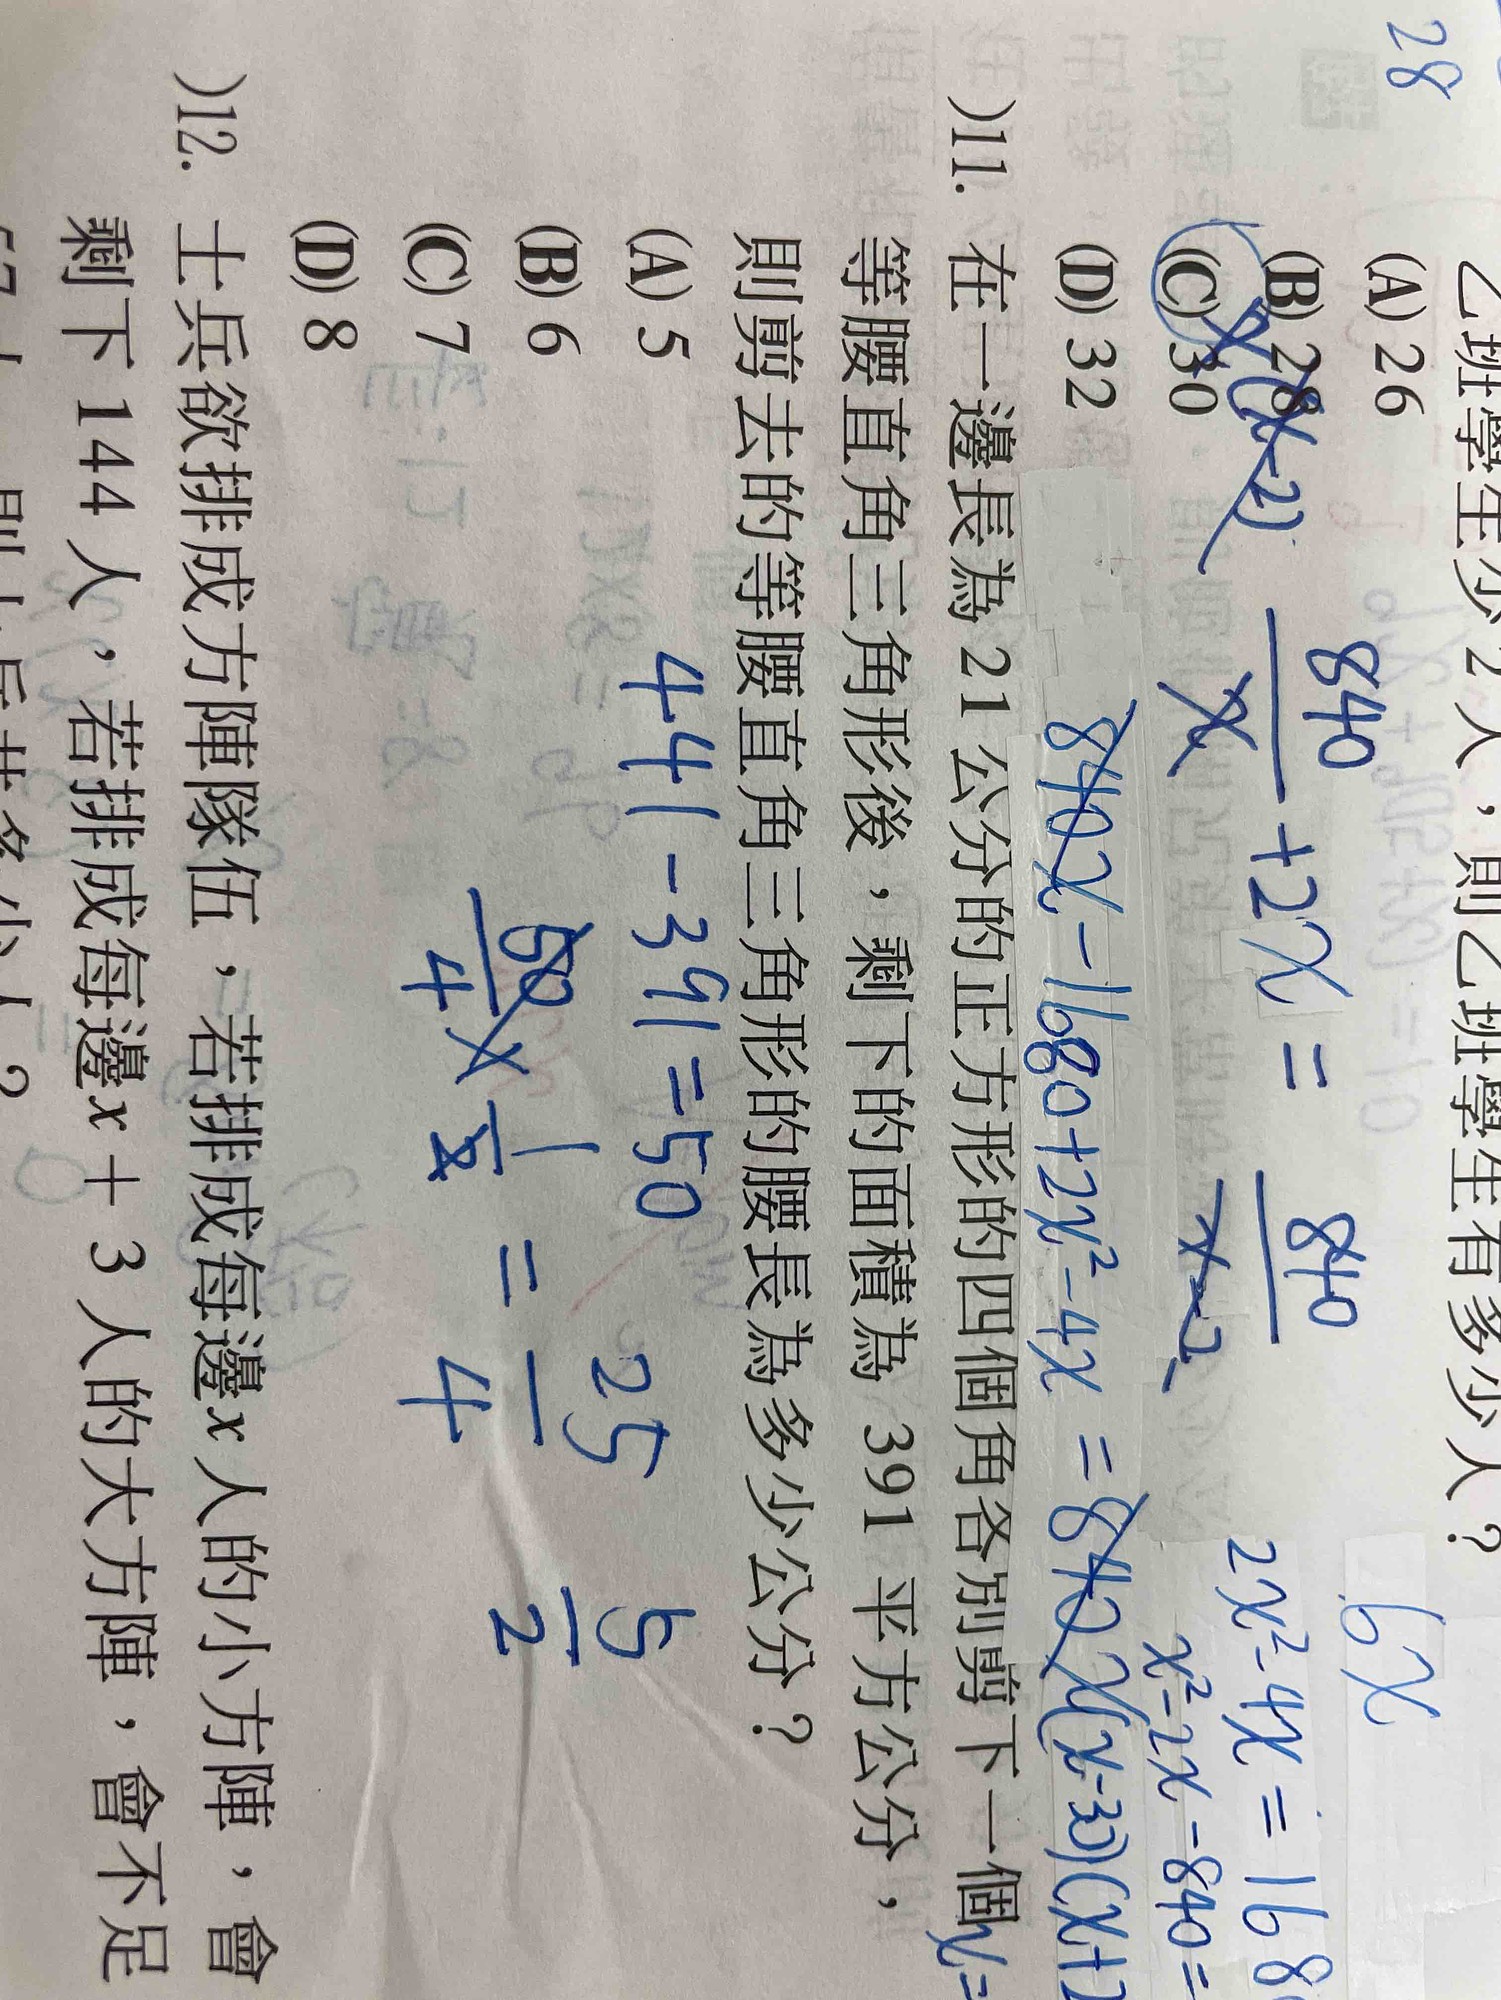 28
乙班學生少 2 人，則乙班學生有多少人？
(A) 26
(B) 28
(C) 30
(D) 32
x(x-2)
840/x + 2x = 840/x-2
6x
2x²-4x = 168
x²-2x-840=
840x-1680+2x²-4x = 840x
(x-30)(x+2
x=
)11. 在一邊長為 21 公分的正方形的四個角各別剪下一個
等腰直角三角形後，剩下的面積為 391 平方公分，
則剪去的等腰直角三角形的腰長為多少公分？
(A) 5
(B) 6
(C) 7
(D) 8
441-391=50
50/4 x 1/2 = 25/4
5/2
)12. 士兵欲排成方陣隊伍，若排成每邊 x 人的小方陣，會
剩下 144 人，若排成每邊 x + 3 人的大方陣，會不足